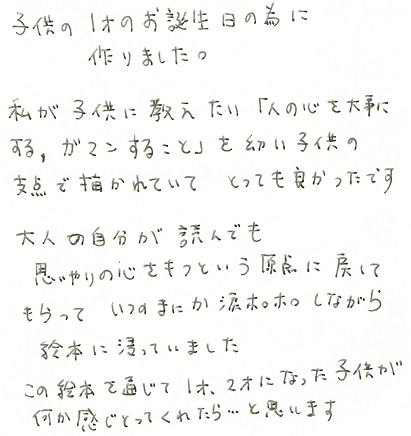 子供の 1才のお誕生日の為に
作りました。
私が 子供に 教えたい「人の心を大事に
する, ガマンすること」を 幼い子供の
支点で描かれていて とっても良かったです
大人の自分が 読んでも
思いやりの心をもつという 原点に 戻して
もらって いつのまにか 涙ポロポロ しながら
絵本に 浸っていました
この絵本を通じて 1才、2才になった子供が
何か感じとってくれたら…と思います